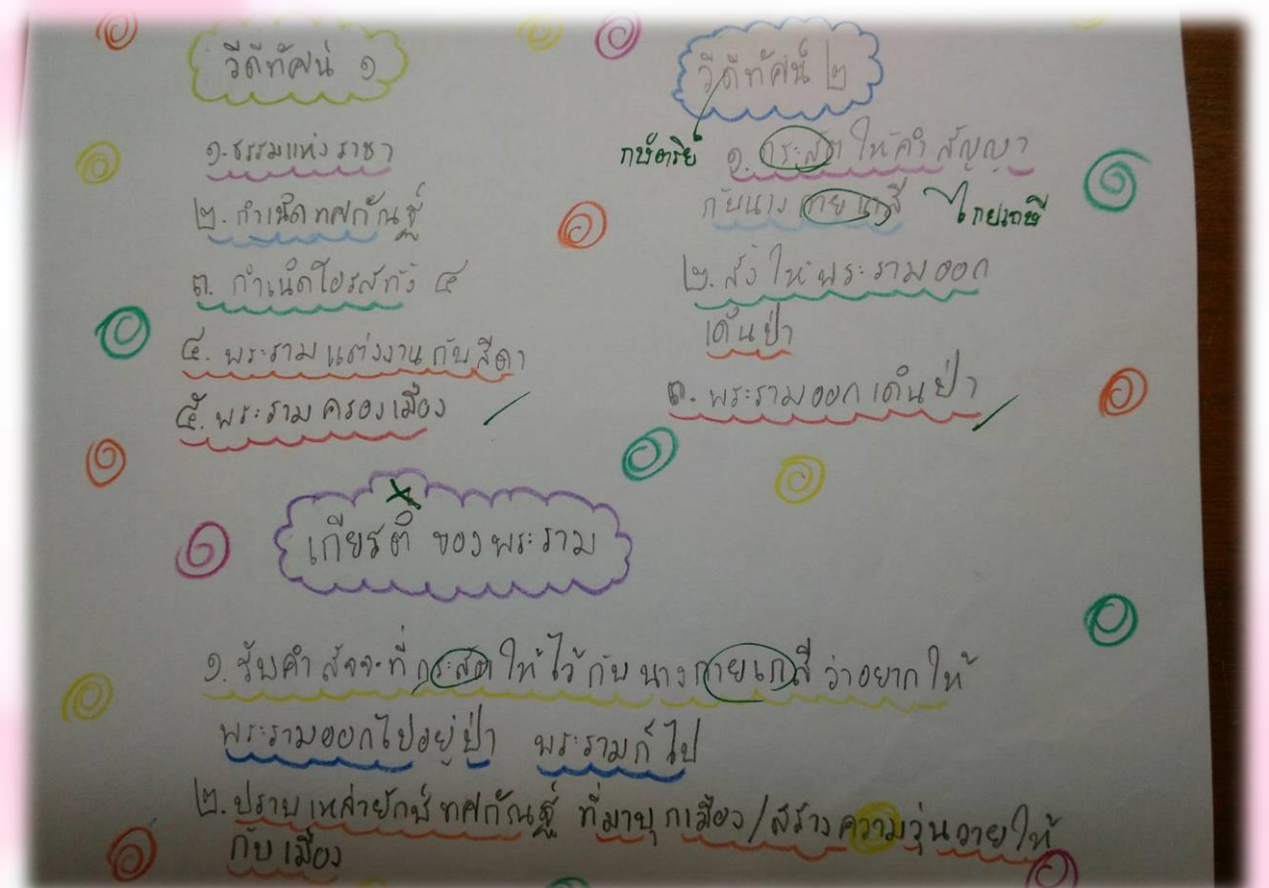 วีดีทัศน์ ๑
๑. ธรรมแห่งราชา
๒. กำเนิดทศกัณฐ์
๓. กำเนิดโอรสทั้ง ๔
๔. พระรามแต่งงานกับสีดา
๕. พระรามครองเมือง
วีดีทัศน์ ๒
กษัตริย์
๑. กระสัต ให้คำสัญญา
กับนาง กายเกสี ไกยเกษี
๒. สั่งให้พระรามออก
เดินป่า
๓. พระรามออกเดินป่า
เกียรติ ของพระราม
๑. รับคำสัจจะที่กระสัตให้ไว้กับนางกายเกสี ว่าอยากให้
พระรามออกไปอยู่ป่า พระรามก็ไป
๒. ปราบเหล่ายักษ์ทศกัณฐ์ ที่มาบุกเมือง/สร้างความวุ่นวายให้
กับเมือง